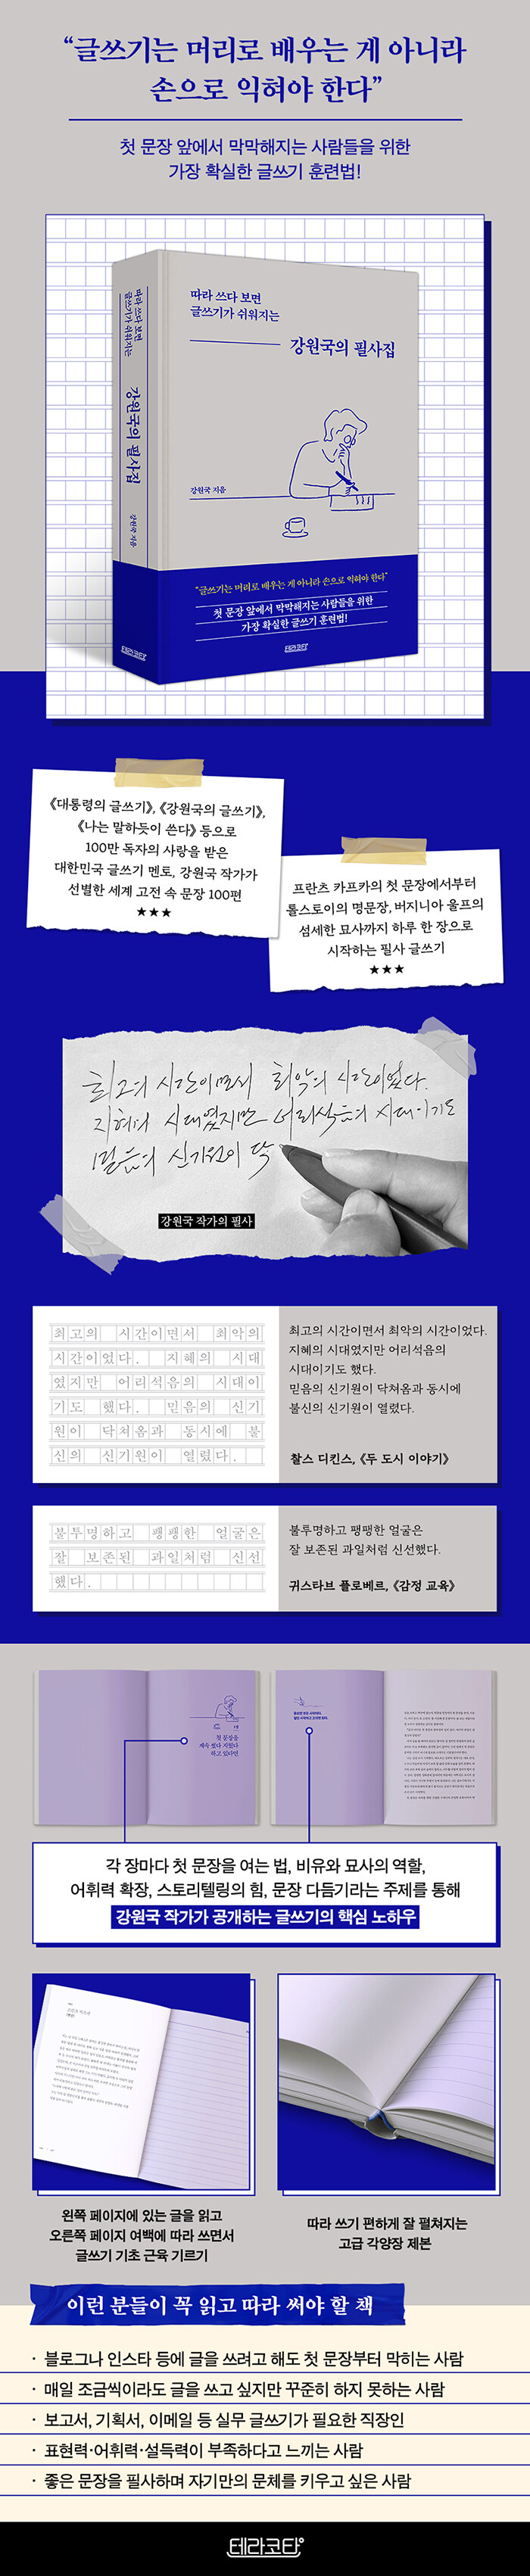 “글쓰기는 머리로 배우는 게 아니라
손으로 익혀야 한다”
첫 문장 앞에서 막막해지는 사람들을 위한
가장 확실한 글쓰기 훈련법!
따라 쓰다 보면
글쓰기가 쉬워지는
강원국의 필사집
강원국 지음
따라 쓰다 보면
글쓰기가 쉬워지는
강원국의 필사집
강원국 지음
“글쓰기는 머리로 배우는 게 아니라 손으로 익혀야 한다”
첫 문장 앞에서 막막해지는 사람들을 위한
가장 확실한 글쓰기 훈련법!
테라코타
테라코타
《대통령의 글쓰기》, 《강원국의 글쓰기》,
《나는 말하듯이 쓴다》 등으로
100만 독자의 사랑을 받은
대한민국 글쓰기 멘토, 강원국 작가가
선별한 세계 고전 속 문장 100편
★★★
프란츠 카프카의 첫 문장에서부터
톨스토이의 명문장, 버지니아 울프의
섬세한 묘사까지 하루 한 장으로
시작하는 필사 글쓰기
★★★
최고의 시간이면서 최악의 시간이었다.
지혜의 시대였지만 어리석음의 시대이기도
믿음의 신기원이 닥
강원국 작가의 필사
최고의 시간이면서 최악의
시간이었다. 지혜의 시대
였지만 어리석음의 시대이
기도 했다. 믿음의 신기
원이 닥쳐옴과 동시에 불
신의 신기원이 열렸다.
최고의 시간이면서 최악의 시간이었다.
지혜의 시대였지만 어리석음의
시대이기도 했다.
믿음의 신기원이 닥쳐옴과 동시에
불신의 신기원이 열렸다.
찰스 디킨스, 《두 도시 이야기》
불투명하고 팽팽한 얼굴은
잘 보존된 과일처럼 신선
했다.
불투명하고 팽팽한 얼굴은
잘 보존된 과일처럼 신선했다.
귀스타브 플로베르, 《감정 교육》
첫 문장을
계속 썼다 지웠다
하고 있다면
각 장마다 첫 문장을 여는 법, 비유와 묘사의 역할,
어휘력 확장, 스토리텔링의 힘, 문장 다듬기라는 주제를 통해
강원국 작가가 공개하는 글쓰기의 핵심 노하우
왼쪽 페이지에 있는 글을 읽고
오른쪽 페이지 여백에 따라 쓰면서
글쓰기 기초 근육 기르기
따라 쓰기 편하게 잘 펼쳐지는
고급 각양장 제본
이런 분들이 꼭 읽고 따라 써야 할 책
· 블로그나 인스타 등에 글을 쓰려고 해도 첫 문장부터 막히는 사람
· 매일 조금씩이라도 글을 쓰고 싶지만 꾸준히 하지 못하는 사람
· 보고서, 기획서, 이메일 등 실무 글쓰기가 필요한 직장인
· 표현력·어휘력·설득력이 부족하다고 느끼는 사람
· 좋은 문장을 필사하며 자기만의 문체를 키우고 싶은 사람
테라코타